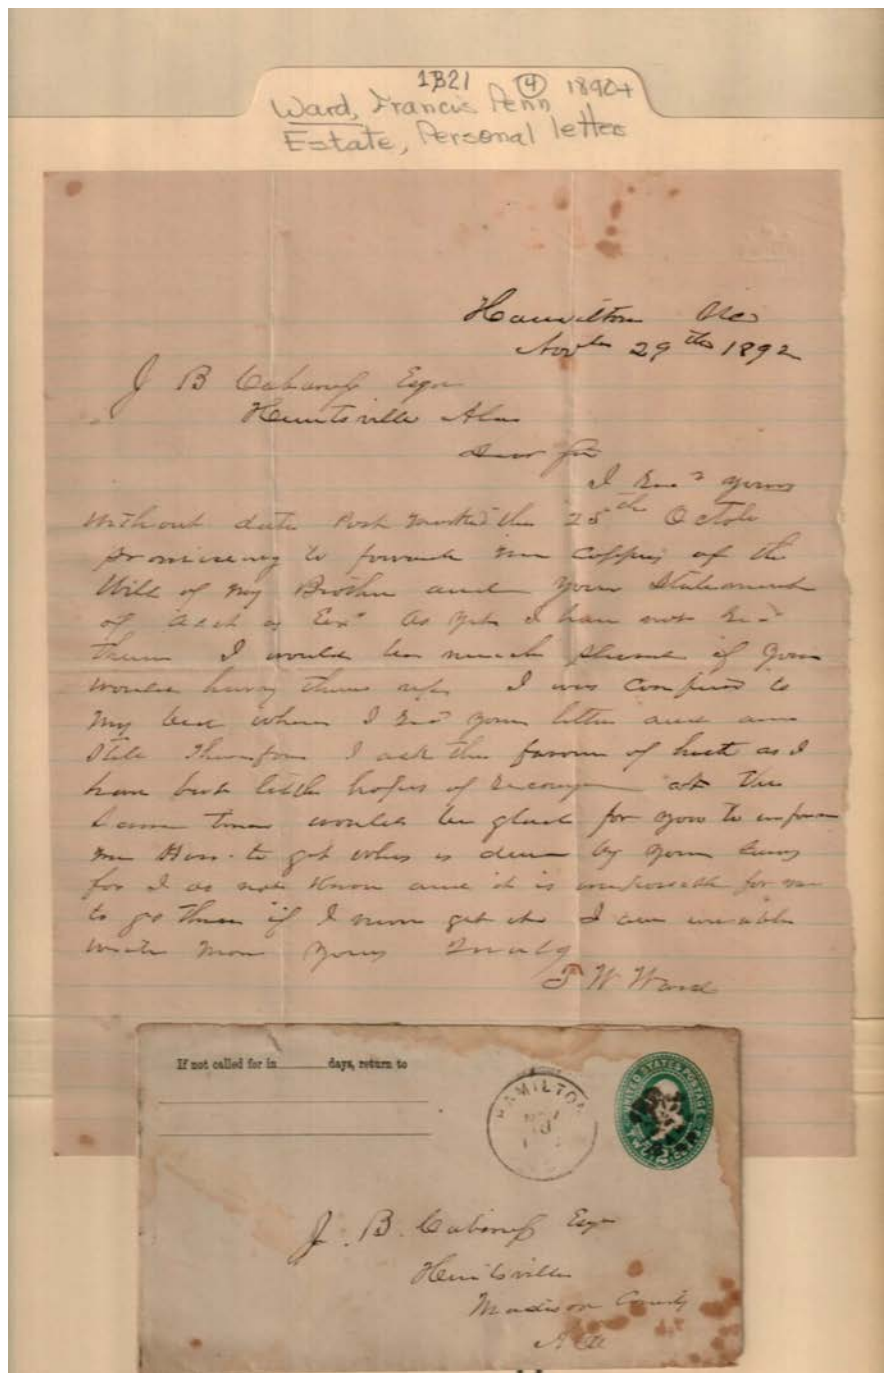 1B21 ④ 1890+
Ward, Francis Penn
Estate, Personal letters
Hamilton
Nov 29th 1892
J B Cabaness Esqr
Huntsville Ala
Dear Sir
I Recd yours
Without date Post marked the 25th Octob
promiseing to forward me coppies of the
Will of my Brother and your Statement
of acct as Exr As yet I have not Recd
them I would be much pleased if you
would hurry them up. I was confined to
my bed when I Recd your letter and am
Still Therefore I ask the favour of haste as I
have but little hopes of recovery at the
Same time would be glad for you to inform
me How to get what is due by your
for I do not Know and it is impossible for me
to go there if I never get it I am unable
write more yours Truly
T W Ward
If not called for in ______ days, return to
HAMILTON
NOV
UNITED STATES POSTAGE
TWO 2 CENTS
J. B. Cabaness Esqr
Huntsville
Madison County
Ala